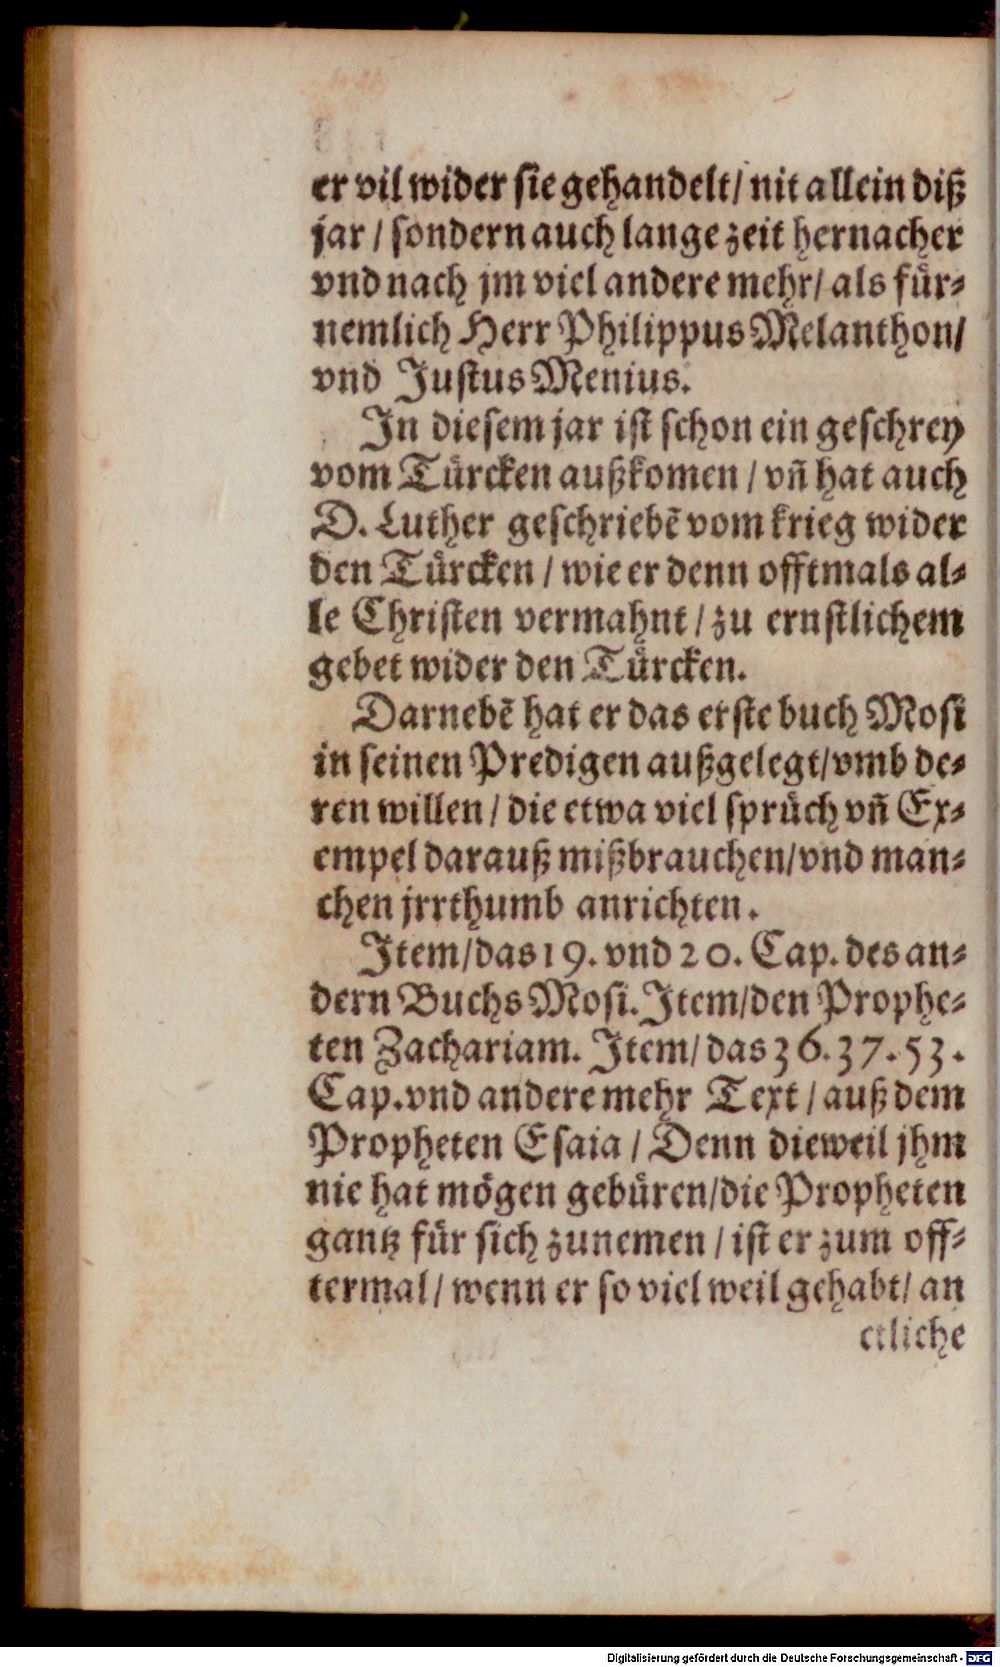 er vil wider sie gehandelt/ nit allein diß
jar / sondern auch lange zeit hernacher
vnd nach jm viel andere mehr/ als fuͤr⸗
nemlich Herr Philippus Melanthon/
vnd Justus Menius.
In diesem jar ist schon ein geschrey
vom Tuͤrcken außkomen / vñ hat auch
D. Luther geschriebẽ vom krieg wider
den Tuͤrcken / wie er denn offtmals al⸗
le Christen vermahnt / zu ernstlichem
gebet wider den Tuͤrcken.
Darnebẽ hat er das erste buch Mosi
in seinen Predigen außgelegt/vmb de⸗
ren willen / die etwa viel spruͤch vñ Ex⸗
empel darauß mißbrauchen/vnd man⸗
chen jrrthumb anrichten.
Item/das 19. vnd 20. Cap. des an⸗
dern Buchs Mosi. Item/den Prophe⸗
ten Zachariam. Item/ das 36. 37. 53.
Cap. vnd andere mehr Text / auß dem
Propheten Esaia / Denn dieweil jhm
nie hat moͤgen gebuͤren/die Propheten
gantz fuͤr sich zunemen / ist er zum off⸗
termal/ wenn er so viel weil gehabt/ an
etliche
Digitalisierung gefördert durch die Deutsche Forschungsgemeinschaft - DFG